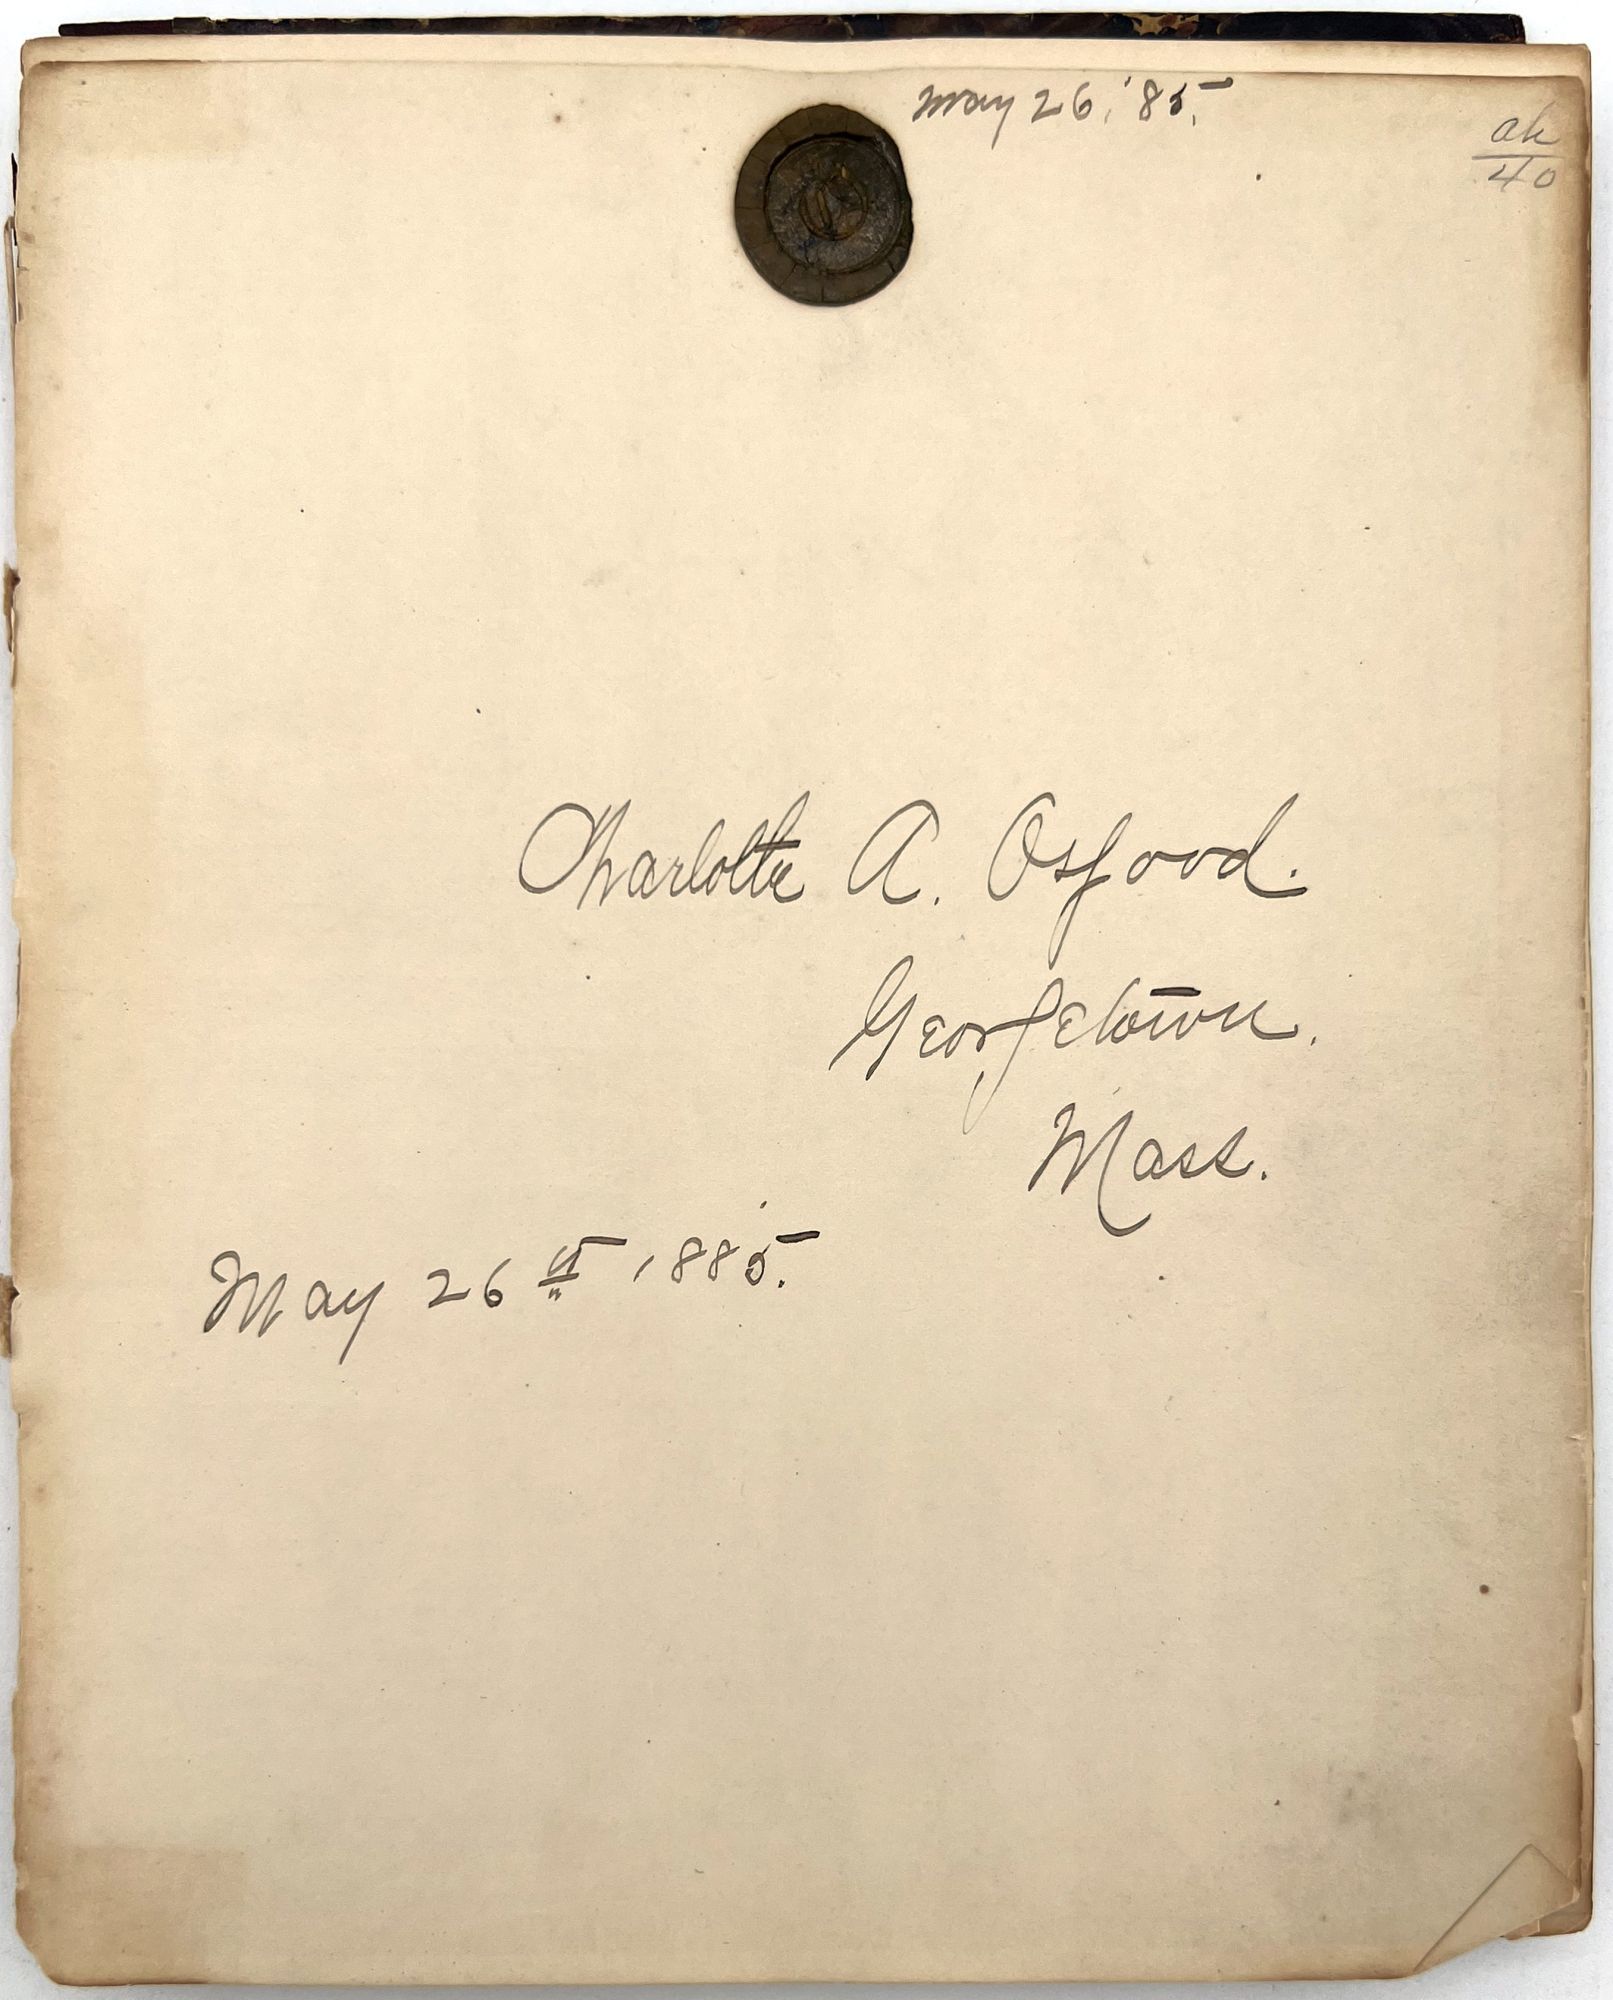 May 26, '85.
ak
40
Charlotte A. Osgood.
Georgetown.
Mass.
May 26th, 1885.